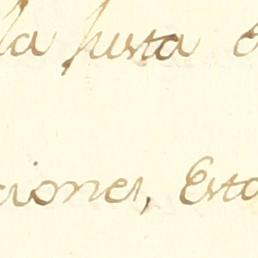 la justa e
ciones, Esta